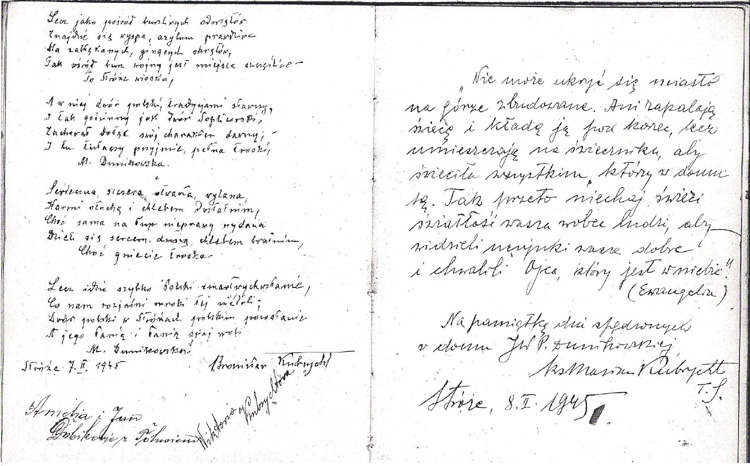 Lecz jako pośród burzliwych odmętów
Znajdzie się wyspa, azylum prawdziwe
Dla zabłąkanych, ginących okrętów,
Tak wśród burz wojny jest miejsce szczęśliwe
To Stróże wioska,
A w niej dwór polski, tradycjami sławny,
I tak gościnny jak dwór Soplicowski,
Zachował dotąd swój charakter dawny,
I tu tułaczy przyjmie, pełna troski
M. Dunikowska.
Serdeczna, szczera, otwarta, wylana
Karmi otuchą i chlebem
Choć sama na łup niepewny wydana
Dzieli się sercem, duszą, chlebem bratnim,
Choć gniecie troska.
Lecz idzie szybko Polski zmartwychwstanie,
Co nam rozjaśni mroki tej niedoli,
Dwór polski w Stróżach polskim pozostanie
A jego Panią i Panią
M. Dunikowska
Stróże 7.II 1945
Bronisław Kubrycht
Wiktoria Kubrychtowa
Amelia i Jan
"Nie może ukryć się miasto
na górze zbudowane. Ani zapalają
świecę i kładą ją pod korzec, lecz
umieszczają na świeczniku, aby
świeciła wszystkim, którzy w domu
są. Tak przeto niechaj świeci
światłość wasza wobec ludzi, aby
widzieli uczynki wasze dobre
i chwalili Ojca, który jest w niebie"
(Ewangelia)
Na pamiątkę dni spędzonych
w domu JW P. Dunikowskiej
Ks Marian Kubrycht
T. J.
Stróże, 8.II 1945